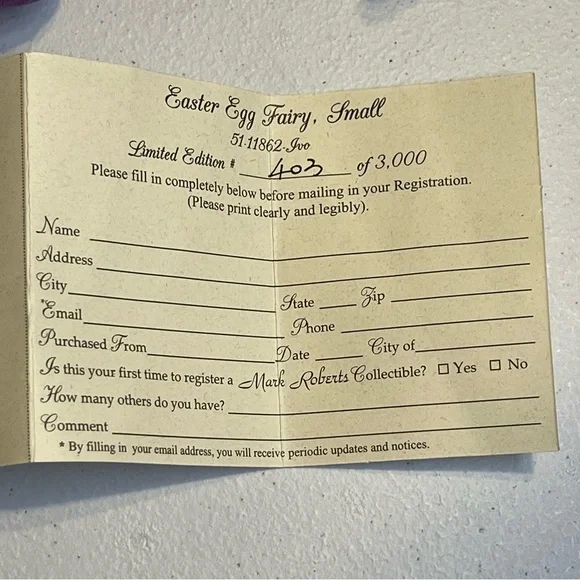 Easter Egg Fairy, Small
51-11862-Ivo
Limited Edition # 403 of 3,000
Please fill in completely below before mailing in your Registration.
(Please print clearly and legibly).
Name
Address
City State Zip
*Email Phone
Purchased From Date City of
Is this your first time to register a Mark Roberts Collectible? ☐ Yes ☐ No
How many others do you have?
Comment
* By filling in your email address, you will receive periodic updates and notices.